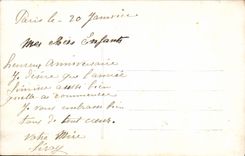 Paris le - 20 Janvier
Mes chers Enfants
heureux Anniversaire
Je désire que l'année
finisse aussi bien
quelle a commencée
Je vous embrasse bien
tous de tout cœur.
votre Mère